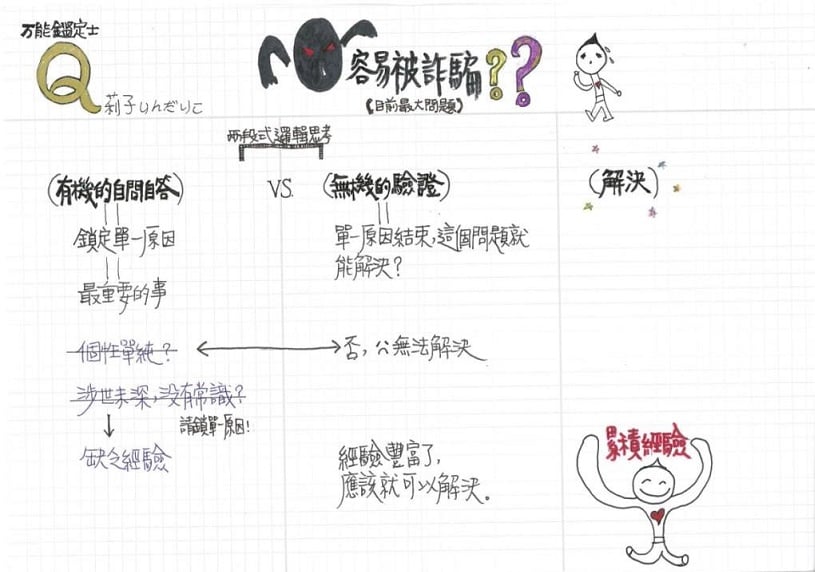 万能鑑定士
Q
莉子りんだりこ
容易被詐騙??
(目前最大問題)
兩段式邏輯思考
(有機的自問自答)
VS.
(無機的驗證)
(解決)
鎖定單一原因
單一原因結束,這個問題就
能解決?
最重要的事
個性單純?
否,∵無法解決
涉世未深,沒有常識?
請鎖單一原因!
缺乏經驗
經驗豐富了,
應該就可以解決。
累積經驗